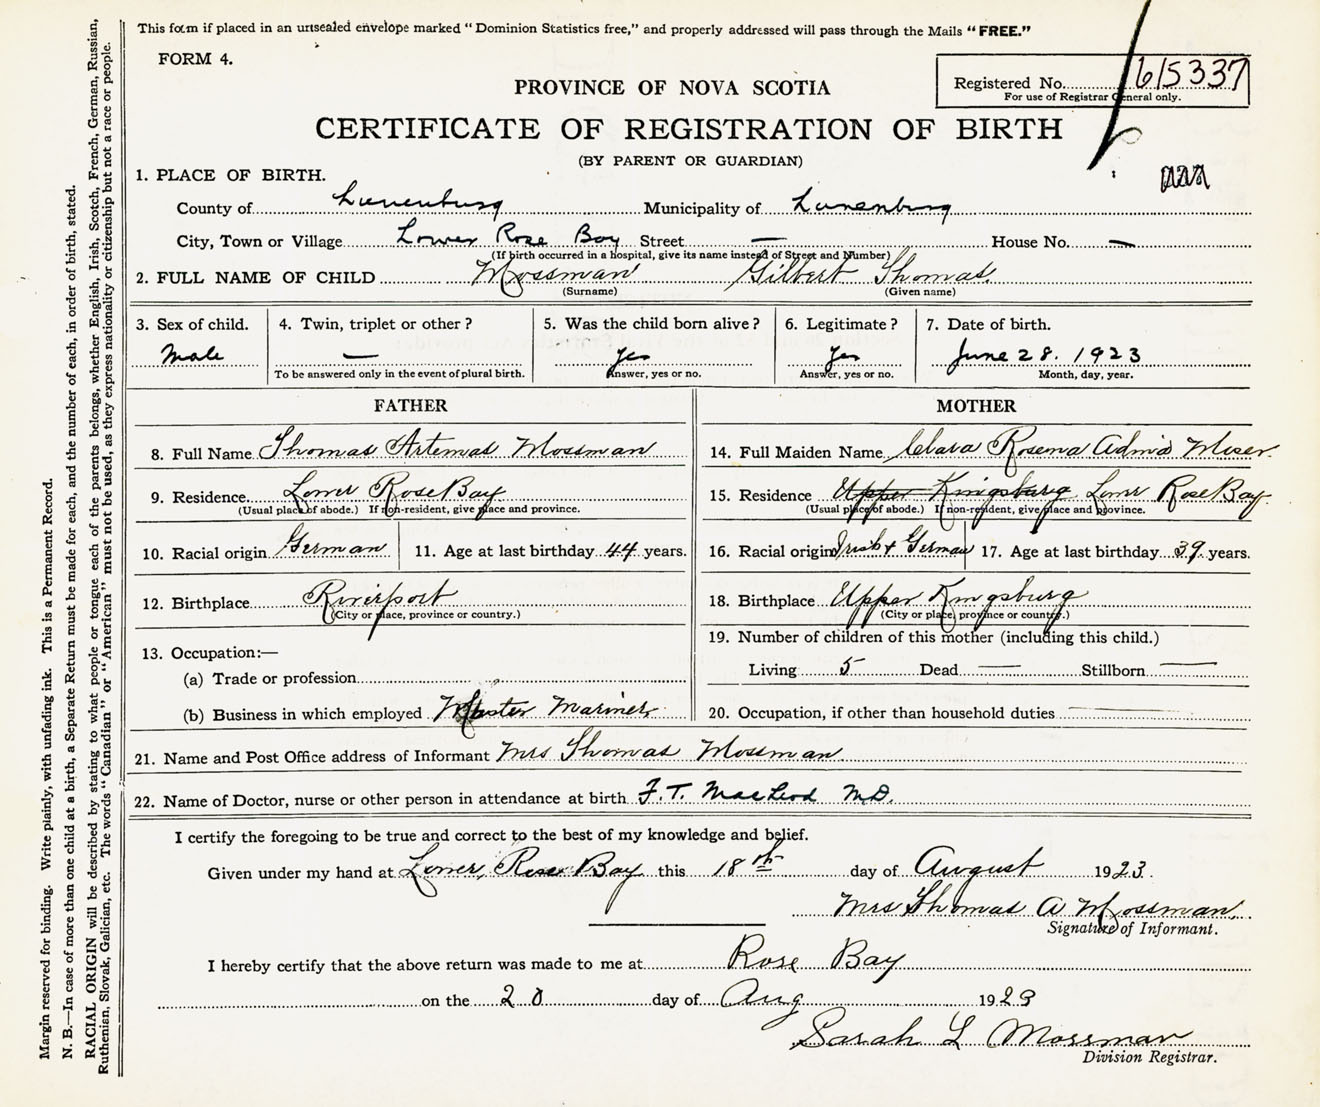 This form if placed in an unsealed envelope marked "Dominion Statistics free," and properly addressed will pass through the Mails "FREE."
FORM 4.
PROVINCE OF NOVA SCOTIA
Registered No. 615337
For use of Registrar General only.
CERTIFICATE OF REGISTRATION OF BIRTH
(BY PARENT OR GUARDIAN)
1. PLACE OF BIRTH.
County of Lunenburg Municipality of Lunenburg
City, Town or Village Lower Rose Bay Street — House No. —
(If birth occurred in a hospital, give its name instead of Street and Number)
2. FULL NAME OF CHILD Mossman Gilbert Thomas
(Surname) (Given name)
3. Sex of child. 4. Twin, triplet or other? 5. Was the child born alive? 6. Legitimate? 7. Date of birth.
Male — Yes Yes June 28. 1923
To be answered only in the event of plural birth. Answer, yes or no. Answer, yes or no. Month, day, year.
FATHER
8. Full Name Thomas Artemas Mossman
9. Residence Lower Rose Bay
(Usual place of abode.) If non-resident, give place and province.
10. Racial origin German 11. Age at last birthday 44 years.
12. Birthplace Riverport
(City or place, province or country.)
13. Occupation:—
(a) Trade or profession
(b) Business in which employed Master Mariner
MOTHER
14. Full Maiden Name Clara Rosena
15. Residence Upper Kingsburg Lower Rose Bay
(Usual place of abode.) If non-resident, give place and province.
16. Racial origin Irish & German 17. Age at last birthday 39 years.
18. Birthplace Upper Kingsburg
(City or place, province or country.)
19. Number of children of this mother (including this child.)
Living 5 Dead — Stillborn —
20. Occupation, if other than household duties —
21. Name and Post Office address of Informant Mrs Thomas Mossman
22. Name of Doctor, nurse or other person in attendance at birth F.T. MacLeod M.D.
I certify the foregoing to be true and correct to the best of my knowledge and belief.
Given under my hand at Lower Rose Bay this 18th day of August 1923.
Mrs Thomas A Mossman
Signature of Informant.
I hereby certify that the above return was made to me at Rose Bay
on the 20 day of Aug 1923
Sarah L Mossman
Division Registrar.
Margin reserved for binding. Write plainly, with unfading ink. This is a Permanent Record.
N. B.—In case of more than one child at a birth, a Separate Return must be made for each, and the number of each, in order of birth, stated.
RACIAL ORIGIN will be described by stating to what people or tongue each of the parents belongs, whether English, Irish, Scotch, French, German, Russian,
Ruthenian, Slovak, Galician, etc. The words "Canadian" or "American" must not be used, as they express nationality or citizenship but not a race or people.